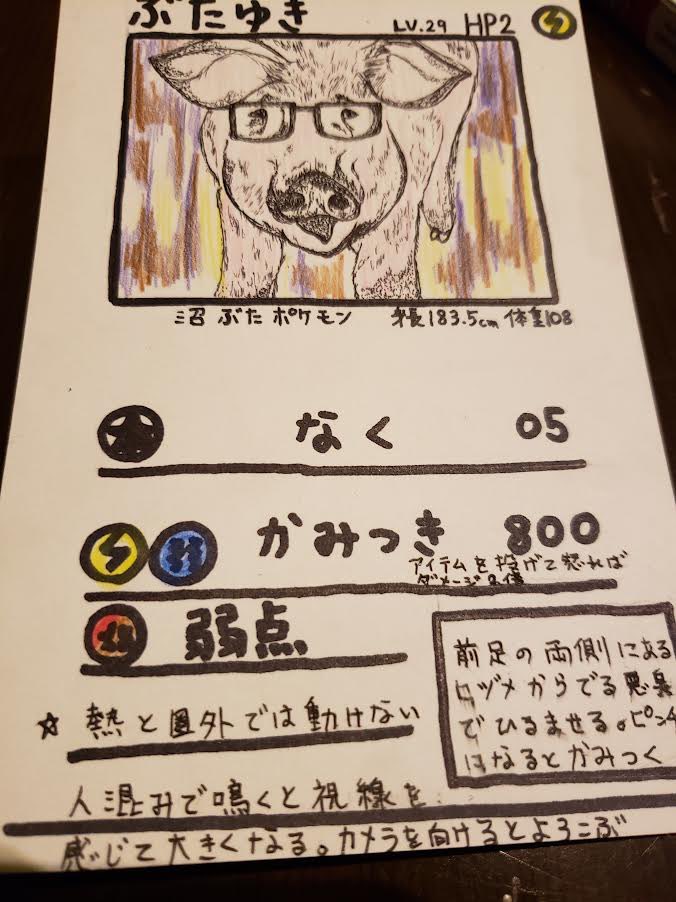 ぶたゆき LV.29 HP2
沼 ぶた ポケモン 身長183.5cm 体重108
なく 05
かみつき 800
アイテムを投げて怒れば
ダメージ2倍
弱点
☆ 熱と圏外では動けない
前足の両側にある
ヒヅメからでる悪臭
でひるませる。ピンチ
になるとかみつく
人混みで鳴くと視線を
感じて大きくなる。カメラを向けるとよろこぶ